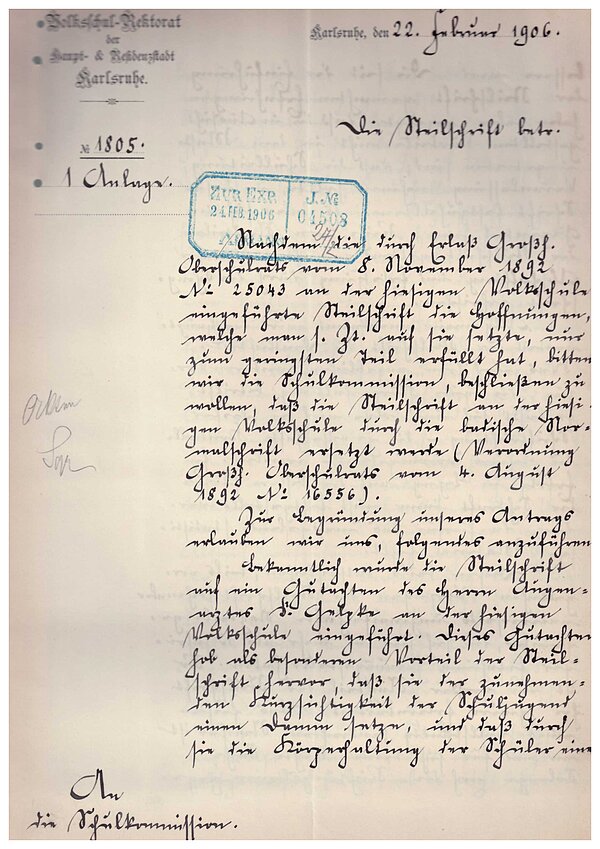 Volksschul-Rektorat
der
Haupt- & Residenzstadt
Karlsruhe.
Karlsruhe, den 22. Februar 1906.
Die Steilschrift betr.
№ 1805.
1 Anlage.
ZUR EXP.
24. FEB. 1906
J. №
04508
Nachdem die durch Erlaß Großh.
Oberschulrats vom 8. November 1892
No 25043 an der hiesigen Volksschule
eingeführte Steilschrift die Hoffnungen,
welche man s. Zt. auf sie setzte, nur
zum geringsten Teil erfüllt hat, bitten
wir die Schulkommission, beschließen zu
wollen, daß die Steilschrift an der hiesi-
gen Volksschule durch die badische Nor-
malschrift ersetzt werde (Verordnung
Großh. Oberschulrats vom 4. August
1892 No 16556).
Zur Begründung unseres Antrags
erlauben wir uns, folgendes anzuführen
Bekanntlich wurde die Steilschrift
auf ein Gutachten des Herrn Augen-
arztes Gelpke an der hiesigen
Volksschule eingeführt. Dieses Gutachten
hob als besonderen Vorteil der Steil-
schrift hervor, daß sie der zunehmen-
den Kurzsichtigkeit der Schuljugend
einen Damm setze, und daß durch
sie die Körperhaltung der Schüler eine
An
die Schulkommission.